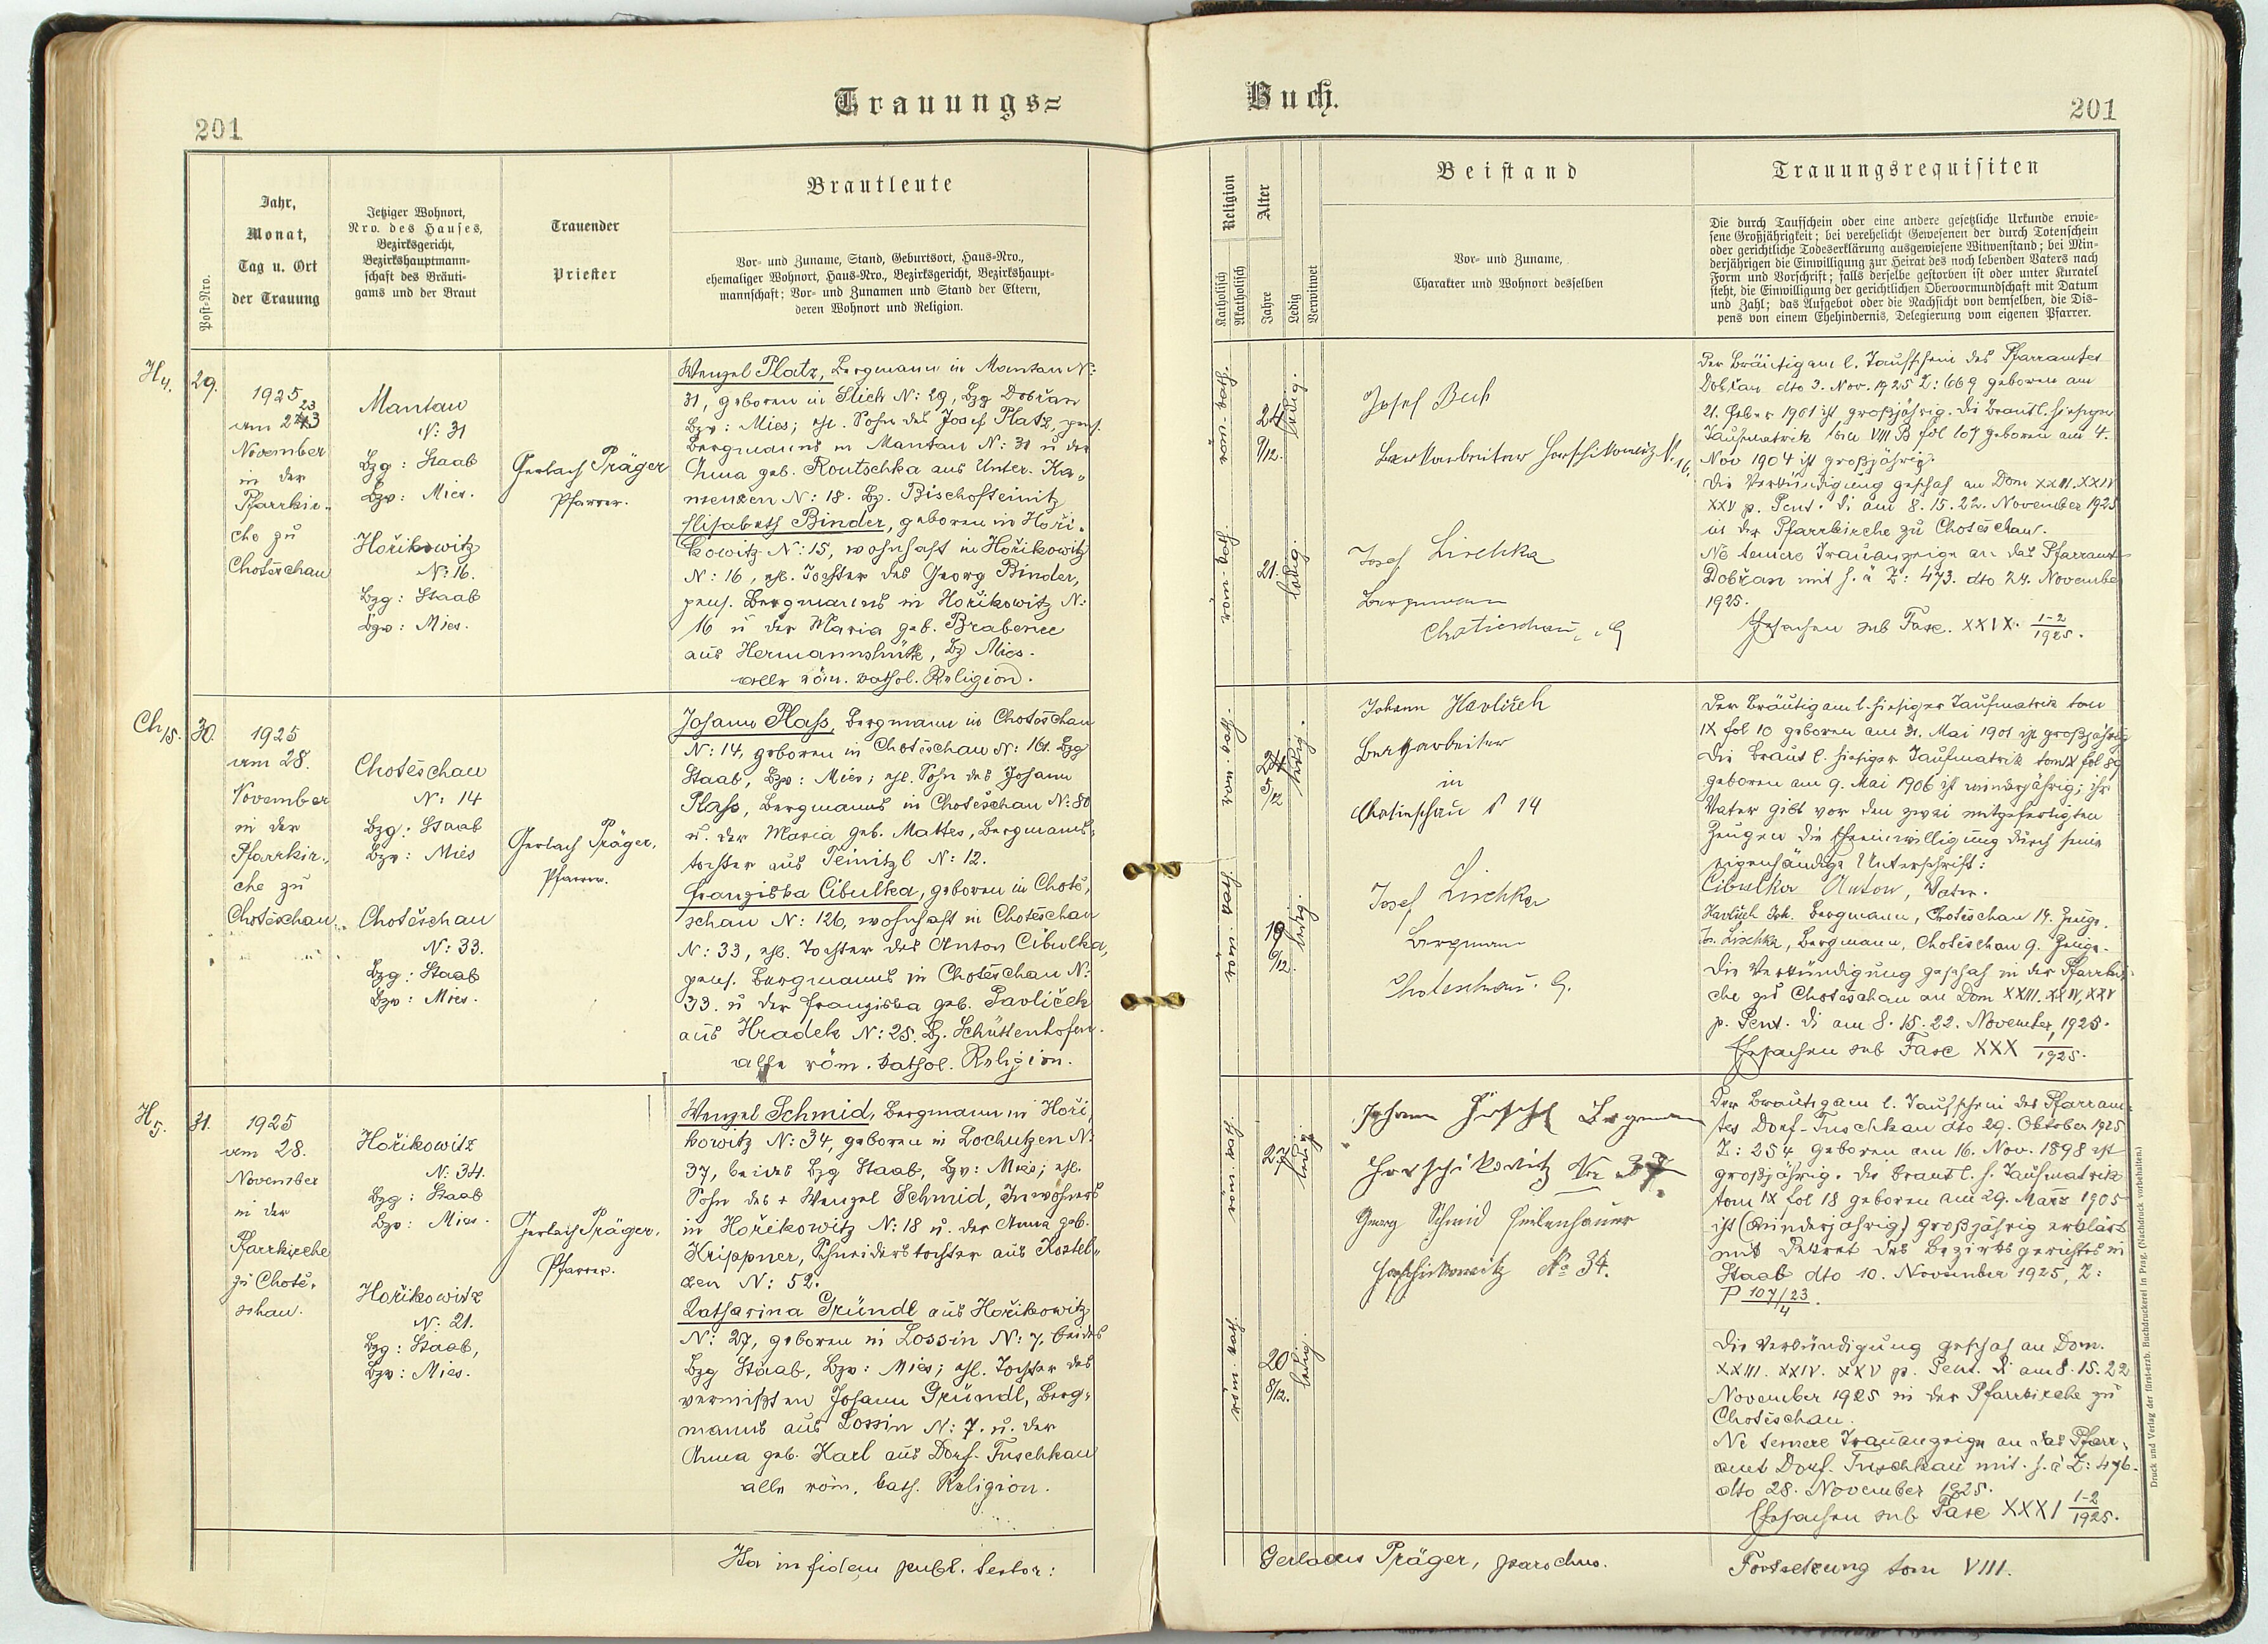 Trauungs=
Buch.
201
201
Post-Nro.
Jahr,
Monat,
Tag u. Ort
der Trauung
Jetziger Wohnort,
Nro. des Hauses,
Bezirksgericht,
Bezirkshauptmann-
schaft des Bräuti-
gams und der Braut
Trauender
Priester
Brautleute
Vor- und Zuname, Stand, Geburtsort, Haus-Nro.,
ehemaliger Wohnort, Haus-Nro., Bezirksgericht, Bezirkshaupt-
mannschaft; Vor- und Zunamen und Stand der Eltern,
deren Wohnort und Religion.
Religion
Katholisch
Akatholisch
Alter
Jahre
Ledig
Verwitwet
Beistand
Vor- und Zuname,
Charakter und Wohnort desselben
Trauungsrequisiten
Die durch Taufschein oder eine andere gesetzliche Urkunde erwie-
sene Großjährigkeit; bei verehelicht Gewesenen der durch Totenschein
oder gerichtliche Todeserklärung ausgewiesene Witwenstand; bei Min-
derjährigen die Einwilligung zur Heirat des noch lebenden Vaters nach
Form und Vorschrift; falls derselbe gestorben ist oder unter Kuratel
steht, die Einwilligung der gerichtlichen Obervormundschaft mit Datum
und Zahl; das Aufgebot oder die Nachsicht von demselben, die Dis-
pens von einem Ehehindernis, Delegierung vom eigenen Pfarrer.
H4.
29.
1925
23
am
November
in der
Pfarrkir-
che zu
Chotěschau
Mantau
N: 31
Bzg: Staab
Bzv: Mies.
Hořikowitz
N: 16.
Bzg: Staab
Bzv: Mies.
Gerlach Präger
Pfarrer.
Wenzel Platz, Bergmann in Mantau N:
31, geboren in Stich N: 29, Bzg Dobřan
Bzv: Mies; ehl. Sohn des Josef Platz, pens.
Bergmanns in Mantau N: 31 u der
Anna geb. Routschka aus Unter-Ka-
menzen N: 18. Bz. Bischofteinitz
Elisabeth Binder, geboren in Hoři-
kowitz N: 15, wohnhaft in Hořikowitz
N: 16, ehl. Tochter des Georg Binder,
pens. Bergmanns in Hořikowitz N:
16 u der Maria geb. Brabenec
aus Hermannshütte, Bz Mies.
alle röm. kathol. Religion.
röm. kath.
24
9/12.
ledig.
röm. kath.
21.
ledig.
Josef Beck
Bergarbeiter Horschikowitz N. 16.
Josef Lischka
Bergmann
Chotieschau, 9
Der Bräutigam l. Taufschein des Pfarramtes
Dobřan dto 3. Nov. 1925 Z: 669 geboren am
21. Feber 1901 ist großjährig. Die Braut l. hiesiger
Taufmatrik tom VIII B fol 107 geboren am 4.
Nov 1904 ist großjährig.
Die Verkündigung geschah an Dom XXIII. XXIV
XXV p. Pent. di am 8. 15. 22. November 1925
in der Pfarrkirche zu Chotěschau.
Ne temere Trauanzeige an das Pfarramt
Dobřan mit h. ä Z: 473. dto 24. November
1925.
Ehesachen sub Fasc. XXIX. 1-2/1925.
Ch15.
30.
1925
am 28.
November
in der
Pfarrkir-
che zu
Chotěschau
Chotěschau
N: 14
Bzg: Staab
Bzv: Mies
Chotěschau
N: 33.
Bzg: Staab
Bzv: Mies.
Gerlach Präger,
Pfarrer.
Johann Plass, Bergmann in Chotěschau
N: 14, geboren in Chotěschau N: 161. Bzg
Staab, Bzv: Mies; ehl. Sohn des Johann
Plass, Bergmanns in Chotěschau N: 80
u. der Maria geb. Mattes, Bergmanns-
tochter aus Teinitzl N: 12.
Franziska Cibulka, geboren in Chotě-
schau N: 126, wohnhaft in Chotěschau
N: 33, ehl. Tochter des Anton Cibulka,
pens. Bergmanns in Chotěschau N:
33. u der Franziska geb. Pavlíček
aus Hradek N: 25. Bz. Schüttenhofen.
alle röm. kathol. Religion.
röm. kath.
24
5/12
ledig.
röm. kath.
19
6/12.
ledig.
Johann Havlitsch
Bergarbeiter
in
Chotieschau N 14
Josef Lischka
Bergmann
Choteschau. 9.
Der Bräutigam l. hiesiger Taufmatrik tom
IX fol 10 geboren am 31. Mai 1901 ist großjährig
Die Braut l. hiesiger Taufmatrik tom IX fol 89
geboren am 9. Mai 1906 ist minderjährig; ihr
Vater gibt vor den zwei mitgefertigten
Zeugen die Eheeinwilligung durch seine
eigenhändige Unterschrift:
Cibulka Anton, Vater.
Havlitsch Joh. Bergmann, Chotěschau 14. Zeuge.
Jos. Lischka, Bergmann, Chotěschau 9. Zeuge.
Die Verkündigung geschah in der Pfarrkir-
che zu Chotěschau an Dom XXIII. XXIV, XXV
p. Pent. di am 8. 15. 22. November, 1925.
Ehesachen sub Fasc XXX 1/1925.
H5.
31.
1925
am 28.
November
in der
Pfarrkirche
zu Chotě-
schau.
Hořikowitz
N: 34.
Bzg: Staab
Bzv: Mies.
Hořikowitz
N: 21.
Bzg: Staab,
Bzv: Mies.
Gerlach Präger,
Pfarrer.
Wenzel Schmid, Bergmann in Hoři-
kowitz N: 34, geboren in Lochutzen N:
37, beides Bzg Staab, Bzv: Mies; ehl.
Sohn des + Wenzel Schmid, Inwohners
in Hořikowitz N: 18 u. der Anna geb.
Krippner, Schneiderstochter aus Kostel-
zen N: 52.
Katharina Gründl aus Hořikowitz
N: 27, geboren in Lossin N: 7, beides
Bzg Staab, Bzv: Mies; ehl. Tochter des
vermißten Johann Gründl, Berg-
manns aus Lossin N: 7. u. der
Anna geb. Karl aus Dorf-Tuschkau
alle röm. kath. Religion.
röm. kath.
27
ledig
röm. kath.
20
8/12.
ledig.
Johann Bergmann
Horschikowitz Nr 37
Georg Schmid Feilenhauer
Horschikowitz No 34.
Der Bräutigam l. Taufschein des Pfarram-
tes Dorf-Tuschkau dto 29. Oktober 1925
Z: 254 geboren am 16. Nov. 1898 ist
großjährig. Die Braut l. h. Taufmatrik
tom IX fol 18 geboren am 29. März 1905
ist (minderjährig) großjährig erklärt
mit Dekret des Bezirksgerichtes in
Staab dto 10. November 1925, Z:
P 107/23/4.
Die Verkündigung geschah an Dom.
XXIII. XXIV. XXV p. Pent. di am 8. 15. 22
November 1925 in der Pfarrkirche zu
Chotěschau.
Ne temere Trauanzeige an das Pfarr-
amt Dorf-Tuschkau mit. h. ä Z: 476.
dto 28. November 1925.
Ehesachen sub Fasc XXXI 1-2/1925.
Ita in fidem publ. testor:
Gerlacus Präger, parochus.
Fortsetzung tom VIII.
Druck und Verlag der fürst-erzb. Buchdruckerei in Prag. (Nachdruck vorbehalten.)